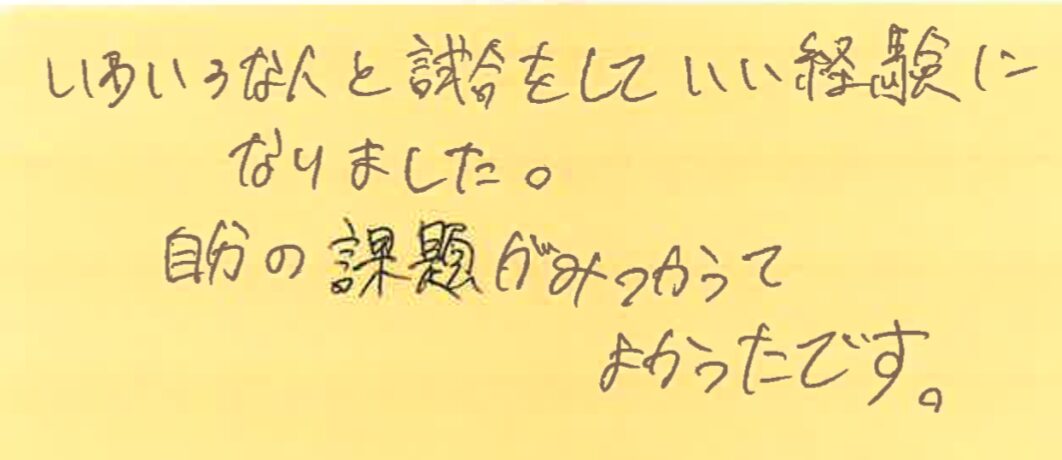 いろいろな人と試合をしていい経験に
なりました。
自分の課題がみつかって
よかったです。